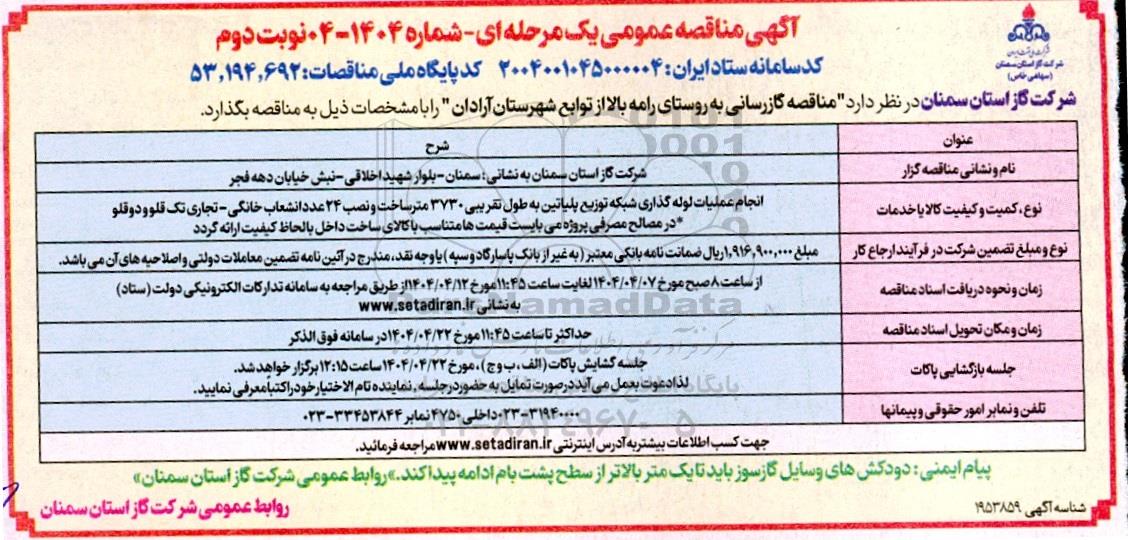 آگهی مناقصه عمومی یک مرحله ای - شماره ۱۴۰۴-۰۴ نوبت دوم
کد سامانه ستاد ایران: ۲۰۰۴۰۰۱۰۴۵۰۰۰۰۰۴ کد پایگاه ملی مناقصات: ۵۳,۱۹۴,۶۹۲
شرکت گاز استان سمنان
(سهامی خاص)
شرکت گاز استان سمنان در نظر دارد "مناقصه گازرسانی به روستای رامه بالا از توابع شهرستان آرادان" را با مشخصات ذیل به مناقصه بگذارد.
عنوان شرح
نام و نشانی مناقصه گزار شرکت گاز استان سمنان به نشانی: سمنان - بلوار شهید اخلاقی - نبش خیابان دهه فجر
نوع، کمیت و کیفیت کالا یا خدمات انجام عملیات لوله گذاری شبکه توزیع پلی‌اتین به طول تقریبی ۳۷۳۰ متر ساخت و نصب ۲۴ عدد انشعاب خانگی - تجاری تک قلو و دو قلو
*در مصالح مصرفی پروژه می بایست قیمت ها متناسب با کالای ساخت داخل با لحاظ کیفیت ارائه گردد
نوع و مبلغ تضمین شرکت در فرآیند ارجاع کار مبلغ ۱,۹۱۶,۹۰۰,۰۰۰ ریال ضمانت نامه بانکی معتبر (به غیر از بانک پاسارگاد و سپه) یا وجه نقد، مندرج در آئین نامه تضمین معاملات دولتی و اصلاحیه های آن می باشد.
زمان و نحوه دریافت اسناد مناقصه از ساعت ۸ صبح مورخ ۱۴۰۴/۰۴/۰۷ لغایت ساعت ۱۱:۴۵ مورخ ۱۴۰۴/۰۴/۱۲ از طریق مراجعه به سامانه تدارکات الکترونیکی دولت (ستاد)
به نشانی www.setadiran.ir
زمان و مکان تحویل اسناد مناقصه حداکثر تا ساعت ۱۱:۴۵ مورخ ۱۴۰۴/۰۴/۲۲ در سامانه فوق الذکر
جلسه بازگشایی پاکات جلسه گشایش پاکات (الف، ب و ج)، مورخ ۱۴۰۴/۰۴/۲۲ ساعت ۱۲:۱۵ برگزار خواهد شد.
لذا دعوت بعمل می آید در صورت تمایل به حضور در جلسه، نماینده تام الاختیار خود را کتبا معرفی نمایید.
تلفن و نمابر امور حقوقی و پیمانها ۰۲۳-۳۱۹۴۰۰۰۰ داخلی ۴۷۵۰ نمابر ۰۲۳-۳۳۴۵۳۸۴۴
جهت کسب اطلاعات بیشتر به آدرس اینترنتی www.setadiran.ir مراجعه فرمائید.
پیام ایمنی: دودکش های وسایل گازسوز باید تا یک متر بالاتر از سطح پشت بام ادامه پیدا کند.»روابط عمومی شرکت گاز استان سمنان»
شناسه آگهی ۱۹۵۳۸۵۹
روابط عمومی شرکت گاز استان سمنان